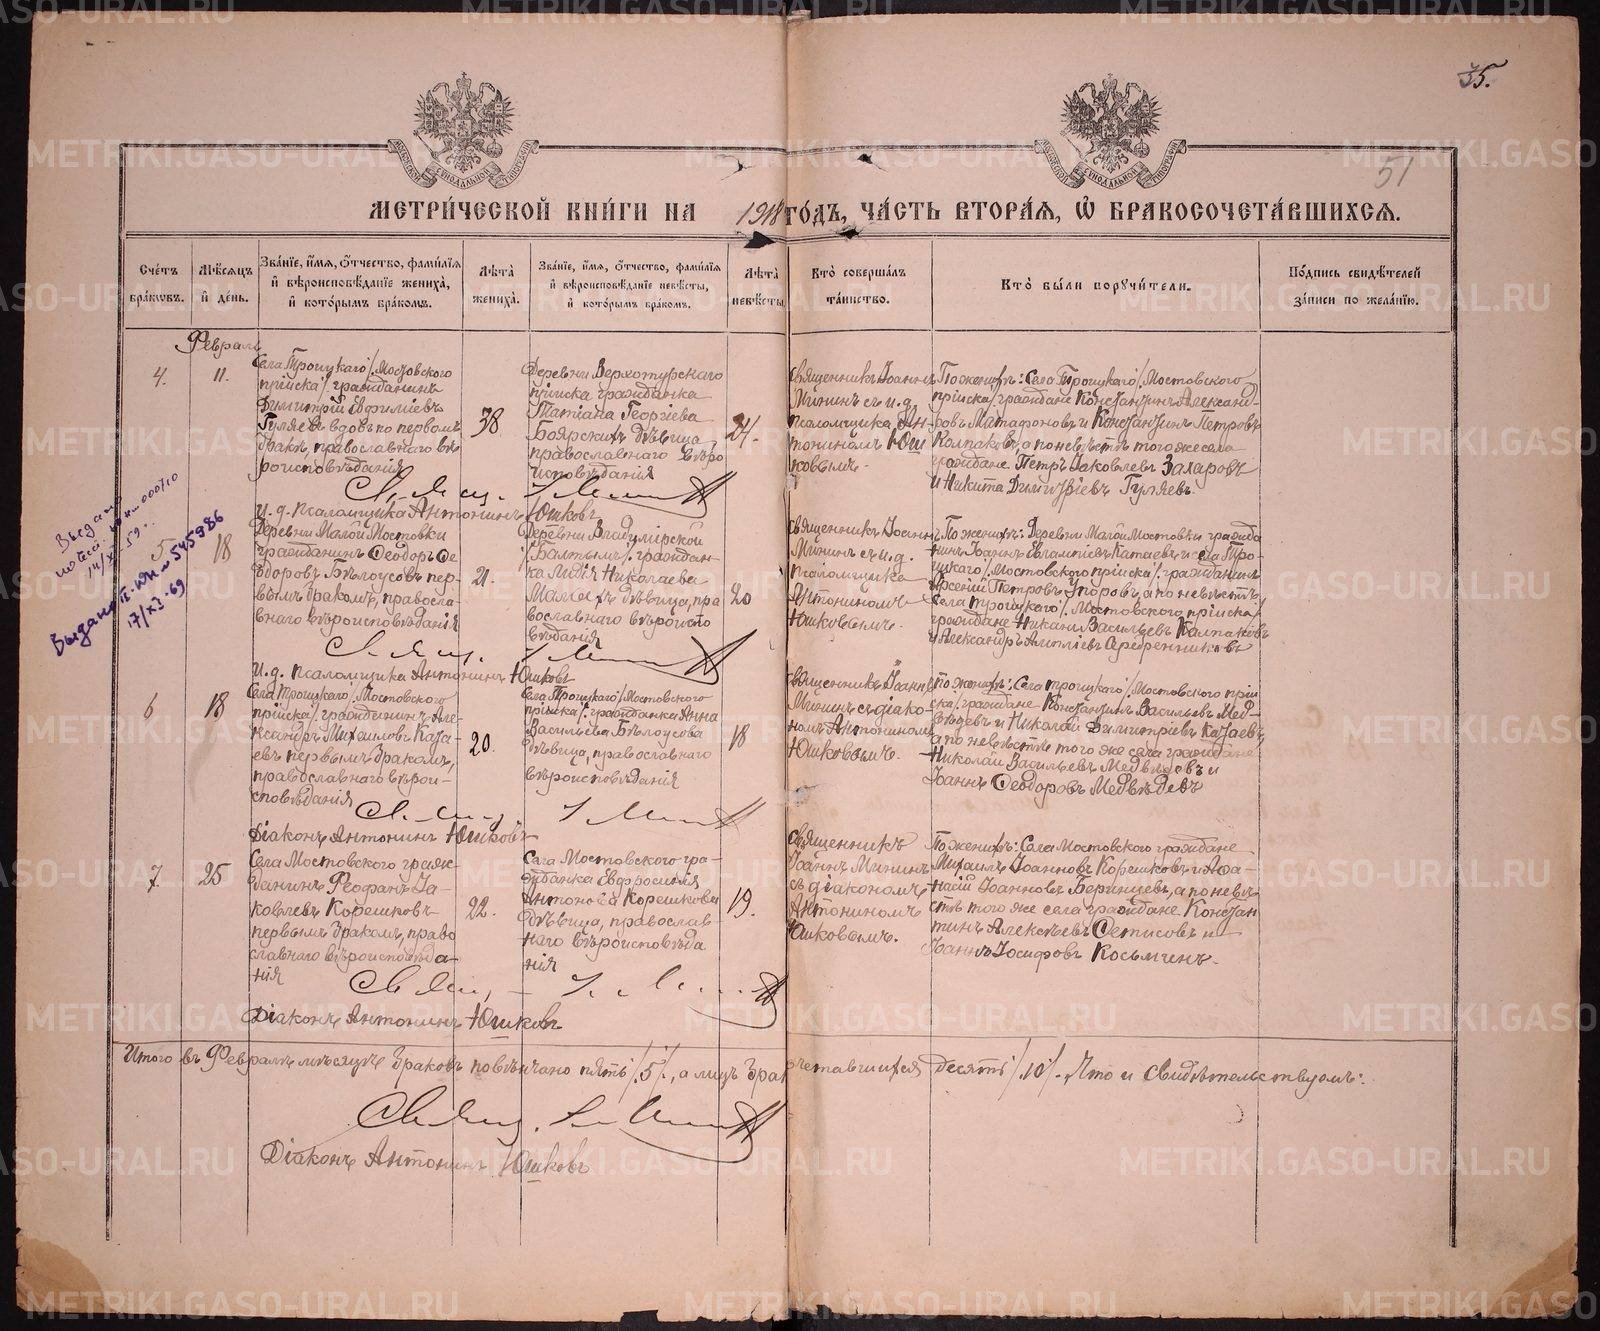 35.
51
МЕТРИ́ЧЕСКОЙ КНИ́ГИ НА 1918 ГО́ДЪ, ЧА́СТЬ ВТОРА́Я, Ѡ БРАКОСОЧЕТА́ВШИХСЯ.
Сче́тъ бра́ковъ.
Мѣ́сяцъ и҆ де́нь.
Зва́нїе, и҆́мя, ѻ҆́тчество, фами́лїя и҆ вѣроисповѣ́данїе жениха̀, и҆ кото́рымъ бра́комъ.
Лѣта̀ жениха̀.
Зва́нїе, и҆́мя, ѻ҆́тчество, фами́лїя и҆ вѣроисповѣ́данїе невѣ́сты, и҆ кото́рымъ бра́комъ.
Лѣта̀ невѣ́сты.
Кто̀ соверша́лъ та́инство.
Кто̀ бы́ли порꙋчи́тели.
По́дпись свидѣ́телей за́писи по жела́нїю.
Февраль
4.
11.
Села Троицкаго /Мостовского
прiиска/ гражданинъ
Димитрiй Евфимiевъ
Гуляевъ вдовъ по первомъ
бракѣ, православнаго вѣ-
роисповѣданiя
38
Деревни Верхотурскаго
прiиска гражданка
Татiана Георгiева
Боярскихъ дѣвица
православнаго вѣро
исповѣданiя
24.
Священникъ Iоаннъ
Мининъ съ и.д.
псаломщика Ан-
тониномъ Юш
ковымъ.
По женихѣ: Села Троицкаго /Мостовского
прiиска/ граждане Константинъ Александ-
ровъ Матафоновъ и Константинъ Петровъ
Колпаковъ, а по невѣстѣ того же села
граждане Петръ Iаковлевъ Захаровъ
и Никита Димитрiевъ Гуляевъ.
и.д. псаломщика Антонинъ Юшковъ
Выдано
повтор.
14/X-59г.
000710
Выдано II-ЮН № 545986
17/XI-69
5
18
Деревни Малой Мостовки
гражданинъ Ѳеодоръ Ѳе-
одоровъ Бѣлоусовъ пер-
вымъ бракомъ, правосла-
внаго вѣроисповѣданiя
21.
Деревни Владимiрской
/Балтымъ/ граждан-
ка Лидiя Николаева
дѣвица, пра
вославнаго вѣроиспо
вѣданiя
20
Священникъ Iоаннъ
Мининъ съ и.д.
псаломщика
Антониномъ
Юшковымъ.
По женихѣ: Деревни Малой Мостовки гражда
нинъ Iоаннъ Евлампiевъ Катаевъ и села Тро-
ицкаго /Мостовского прiиска/ гражданинъ
Арсенiй Петровъ Упоровъ, а по невѣстѣ
Села Троицкаго /Мостовского прiиска/
граждане Никаноръ Васильевъ Колпаковъ
и Александръ Серебренниковъ
И.д. псаломщика Антонинъ Юшковъ
6
18
Села Троицкаго /Мостовского
прiиска/ гражданинъ Але-
ксандръ Михаиловъ Ката-
евъ первымъ бракомъ,
православнаго вѣрои-
сповѣданiя
20.
Села Троицкаго /Мостовского
прiиска/ гражданка Анна
Васильева Бѣлоусова
дѣвица, православнаго
вѣроисповѣданiя
18
Священникъ Iоаннъ
Мининъ съ дiако-
номъ Антониномъ
Юшковымъ.
По женихѣ: Села Троицкаго /Мостовского прiи
ска/ граждане Константинъ Васильевъ Мед-
вѣдевъ и Николай Димитрiевъ Катаевъ,
а по невѣстѣ того же села граждане
Николай Васильевъ Медвѣдевъ и
Iоаннъ Ѳеодоровъ Медвѣдевъ
Дiаконъ Антонинъ Юшковъ
7
25
Села Мостовского граж-
данинъ Ѳеофанъ Iа-
ковлевъ Корешковъ
первымъ бракомъ, право
славнаго вѣроисповѣда-
нiя
22.
Села Мостовского гра-
жданка Евфросинiя
Антонова Корешкова
дѣвица, православ-
наго вѣроисповѣда
нiя
19.
Священникъ
Iоаннъ Мининъ
съ дiакономъ
Антониномъ
Юшковымъ.
По женихѣ: Села Мостовского граждане
Михаилъ Iоанновъ Корешковъ и Аѳа-
насiй Iоанновъ Беринцевъ, а по невѣ-
стѣ того же села граждане Констан
тинъ Алексѣевъ Ѳетисовъ и
Iоаннъ Iосифовъ Косьминъ.
Дiаконъ Антонинъ Юшковъ
Итого въ Февралѣ мѣсяцѣ браковъ повѣнчано пять /5/, а лицъ бракосочетавшихся десять /10/. Что и свидѣтельствуемъ:
Дiаконъ Антонинъ Юшковъ
METRIKI.GASO-URAL.RU